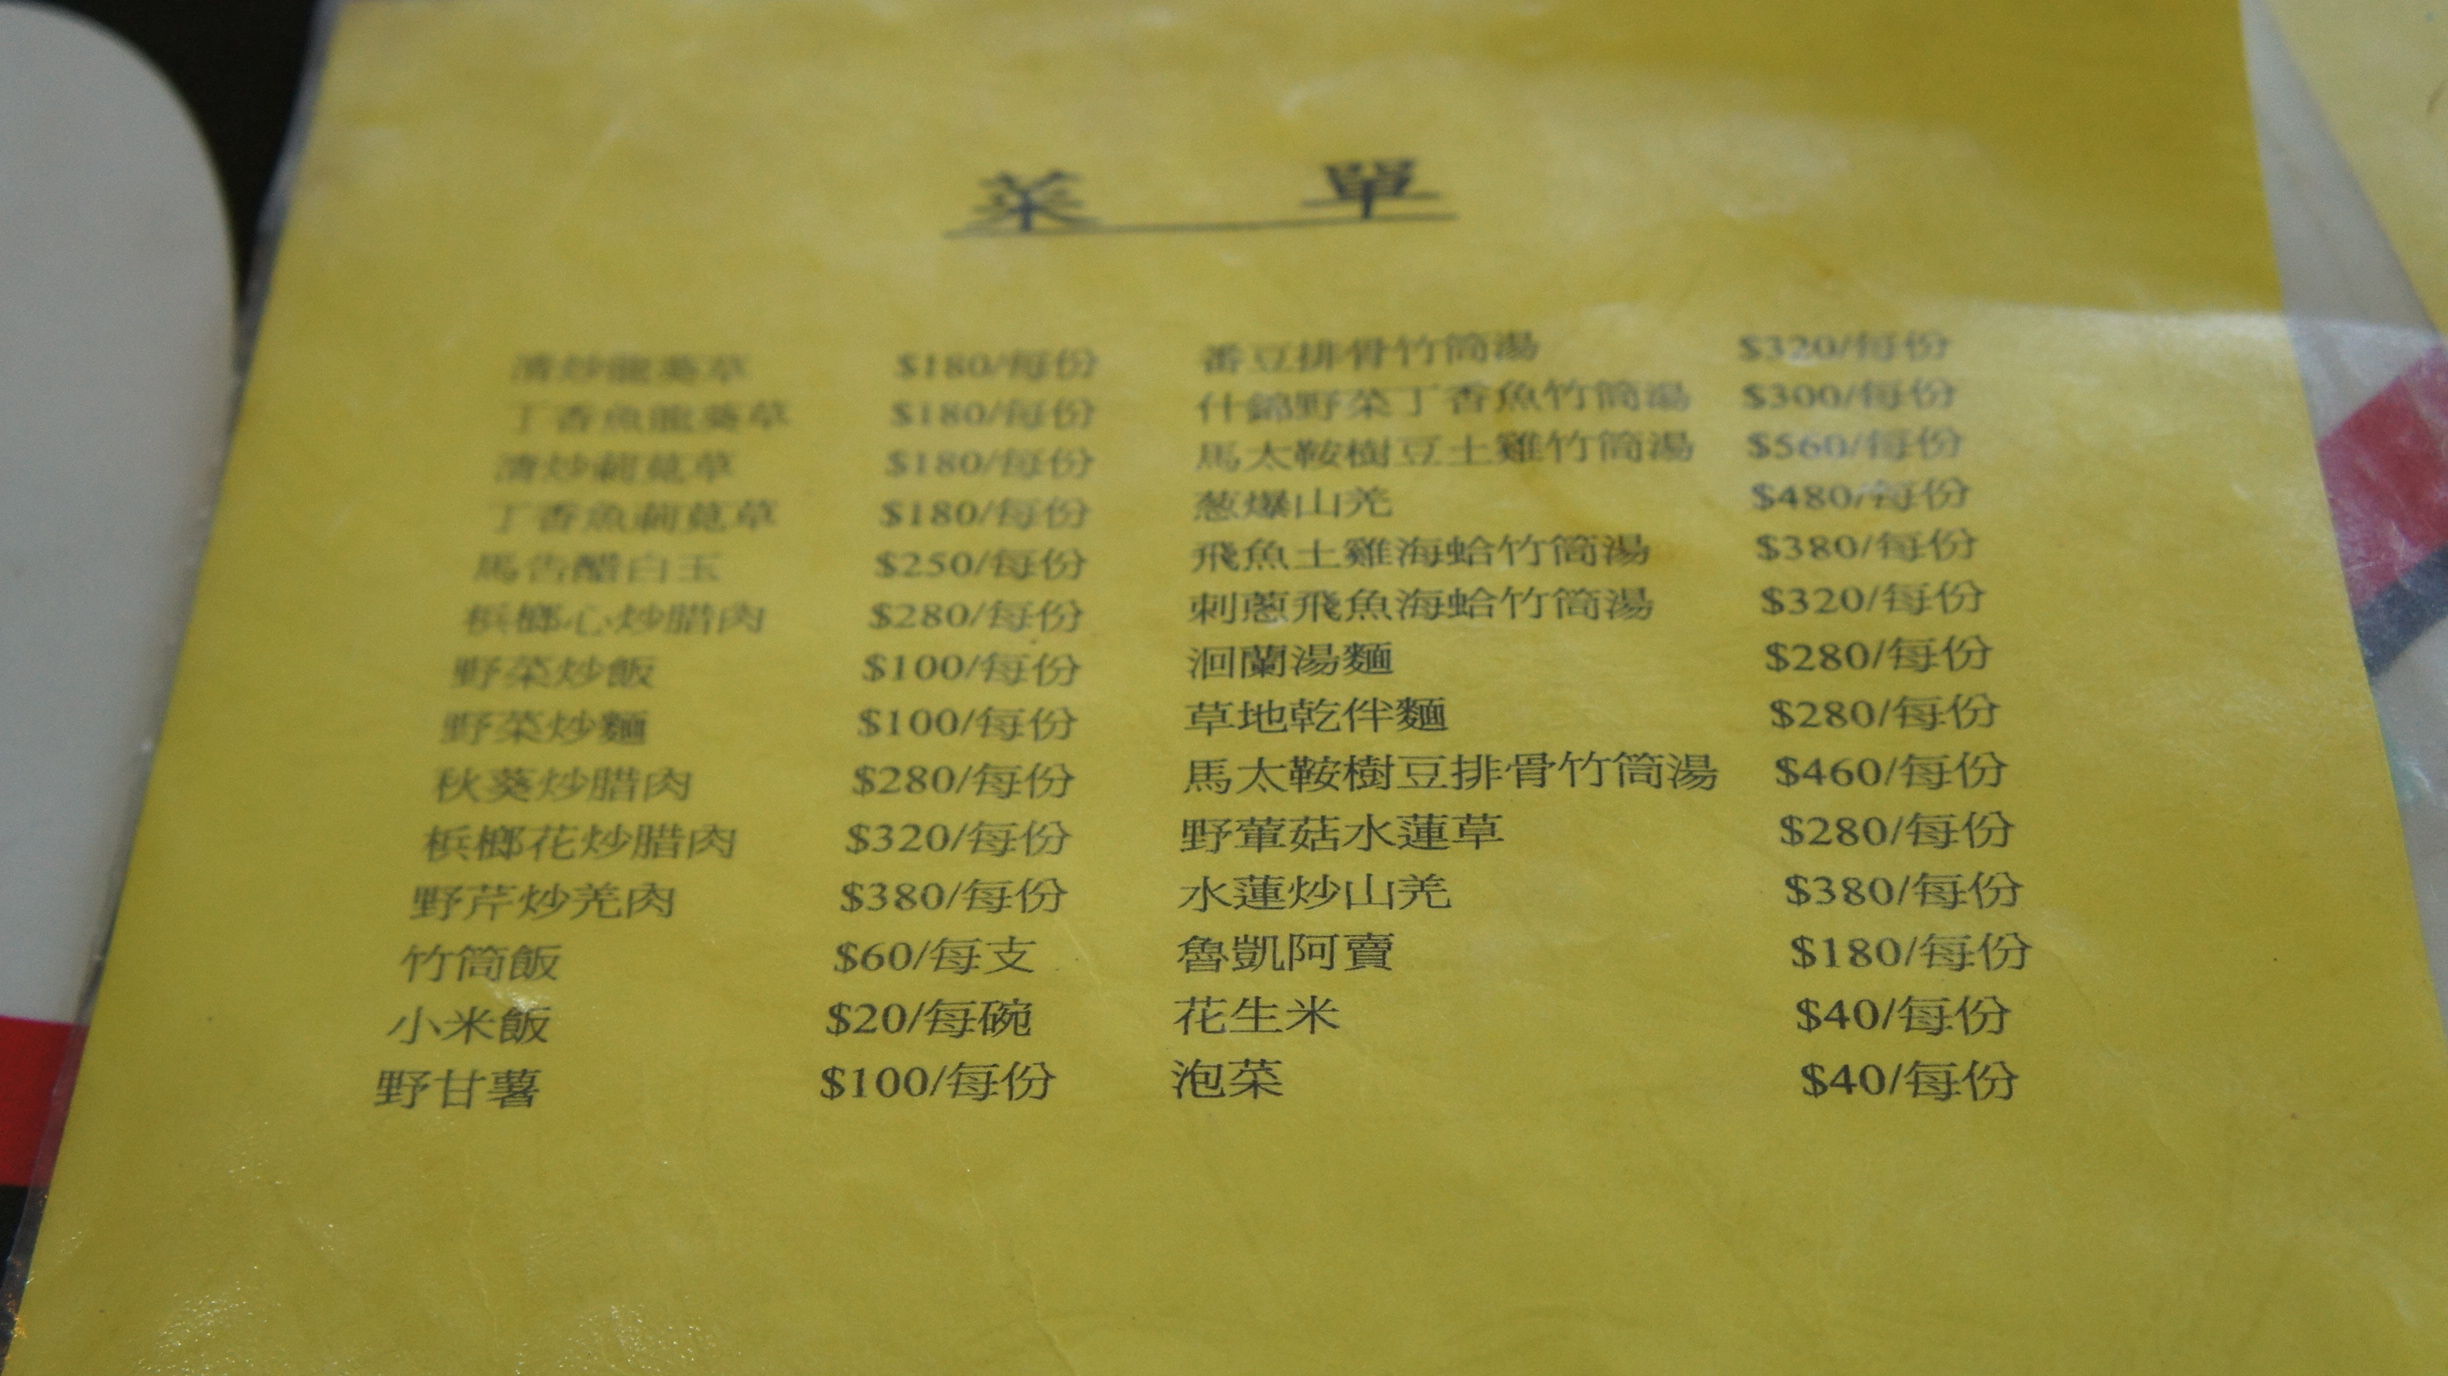 菜 單
清炒龍葵草 $180/每份 番豆排骨竹筒湯 $320/每份
丁香魚龍葵草 $180/每份 什錦野菜丁香魚竹筒湯 $300/每份
清炒蕨菜草 $180/每份 馬太鞍樹豆土雞竹筒湯 $560/每份
$180/每份 葱爆山羌 $480/每份
馬告醋白玉 $250/每份 飛魚土雞海蛤竹筒湯 $380/每份
梹榔心炒腊肉 $280/每份 刺蔥飛魚海蛤竹筒湯 $320/每份
野菜炒飯 $100/每份 洄蘭湯麵 $280/每份
野菜炒麵 $100/每份 草地乾伴麵 $280/每份
秋葵炒腊肉 $280/每份 馬太鞍樹豆排骨竹筒湯 $460/每份
梹榔花炒腊肉 $320/每份 野蕈菇水蓮草 $280/每份
野芹炒羌肉 $380/每份 水蓮炒山羌 $380/每份
竹筒飯 $60/每支 魯凱阿賣 $180/每份
小米飯 $20/每碗 花生米 $40/每份
野甘薯 $100/每份 泡菜 $40/每份